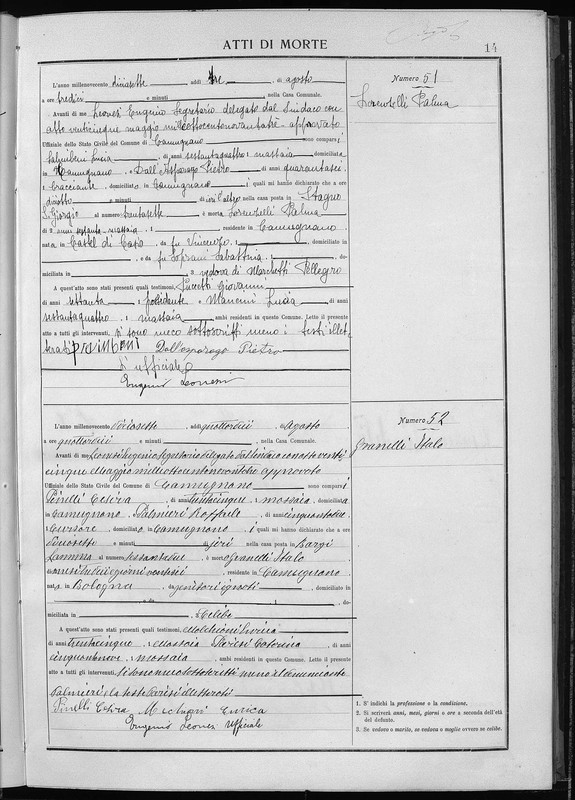 ATTI DI MORTE
14
Numero 51
Lorentelli Palma
L'anno millenovecento diciasette addì tre di agosto
a ore tredici e minuti nella Casa Comunale.
Avanti di me Leonesi Eugenio Segretario delegato dal Sindaco con
atto venticinque maggio millottocentonovantatré approvato
Ufficiale dello Stato Civile del Comune di Camugnano sono comparsi
Palmieri Lucia, di anni sessantaquattro, massaia domiciliata
in Camugnano e Dall'Asparago Pietro di anni quarantasei
bracciante, domiciliato in Camugnano, i quali mi hanno dichiarato che a ore
diciotto e minuti di ieri l'altro nella casa posta in Stagno
S. Giorgio al numero trentasette è morta Lorentelli Palma
di anni settanta massaia, residente in Camugnano
nata in Castel di Casio da fu Vincenzo, domiciliato in
e da fu Soprani Sabattina, do-
miciliata in vedova di Marchetti Pellegro
A quest'atto sono stati presenti quali testimoni, Puccetti Giovanni
di anni ottanta, possidente e Mancini Lucia di anni
sessantaquattro, massaia ambi residenti in questo Comune. Letto il presente
atto a tutti gli intervenuti, si sono meco sottoscritti meno i testi illet-
terati
Dall'asparago Pietro
L'ufficiale
Eugenio Leonesi
Numero 52
Granelli Italo
L'anno millenovecento diciasette, addì quattordici di Agosto
a ore quattordici e minuti, nella Casa Comunale.
Avanti di me Leonesi Eugenio Segretario delegato dal Sindaco con atto venti
cinque Maggio millottocentonovantatré approvato
Ufficiale dello Stato Civile del Comune di Camugnano sono comparsi
Pinelli Cesira, di anni trentacinque, massaia, domiciliata
in Camugnano e Palmieri Raffaele, di anni cinquantadue
Cursore, domiciliato in Camugnano, i quali mi hanno dichiarato che a ore
e minuti di ieri nella casa posta in Bargi
al numero sessantadue, è morto Granelli Italo
di mesi giorni ventisei, residente in Camugnano
nato in Bologna, da genitori ignoti, domiciliato in
e da, do-
miciliata in Celibe
A quest'atto sono stati presenti quali testimoni, Melchiorri Enrica
di anni trentacinque, Massaia Parisi Caterina, di anni
cinquantanove, massaia, ambi residenti in questo Comune. Letto il presente
atto a tutti gli intervenuti, si sono meco sottoscritti meno il denunciante
Palmieri e la teste Parisi illetterati
Pinelli Cesira Melchiorri Enrica
Eugenio Leonesi Ufficiale
1. S'indichi la professione o la condizione.
2. Si scriverà anni, mesi, giorni o ore a seconda dell'età
del defunto.
3. Se vedovo o marito, se vedova o moglie ovvero se celibe.